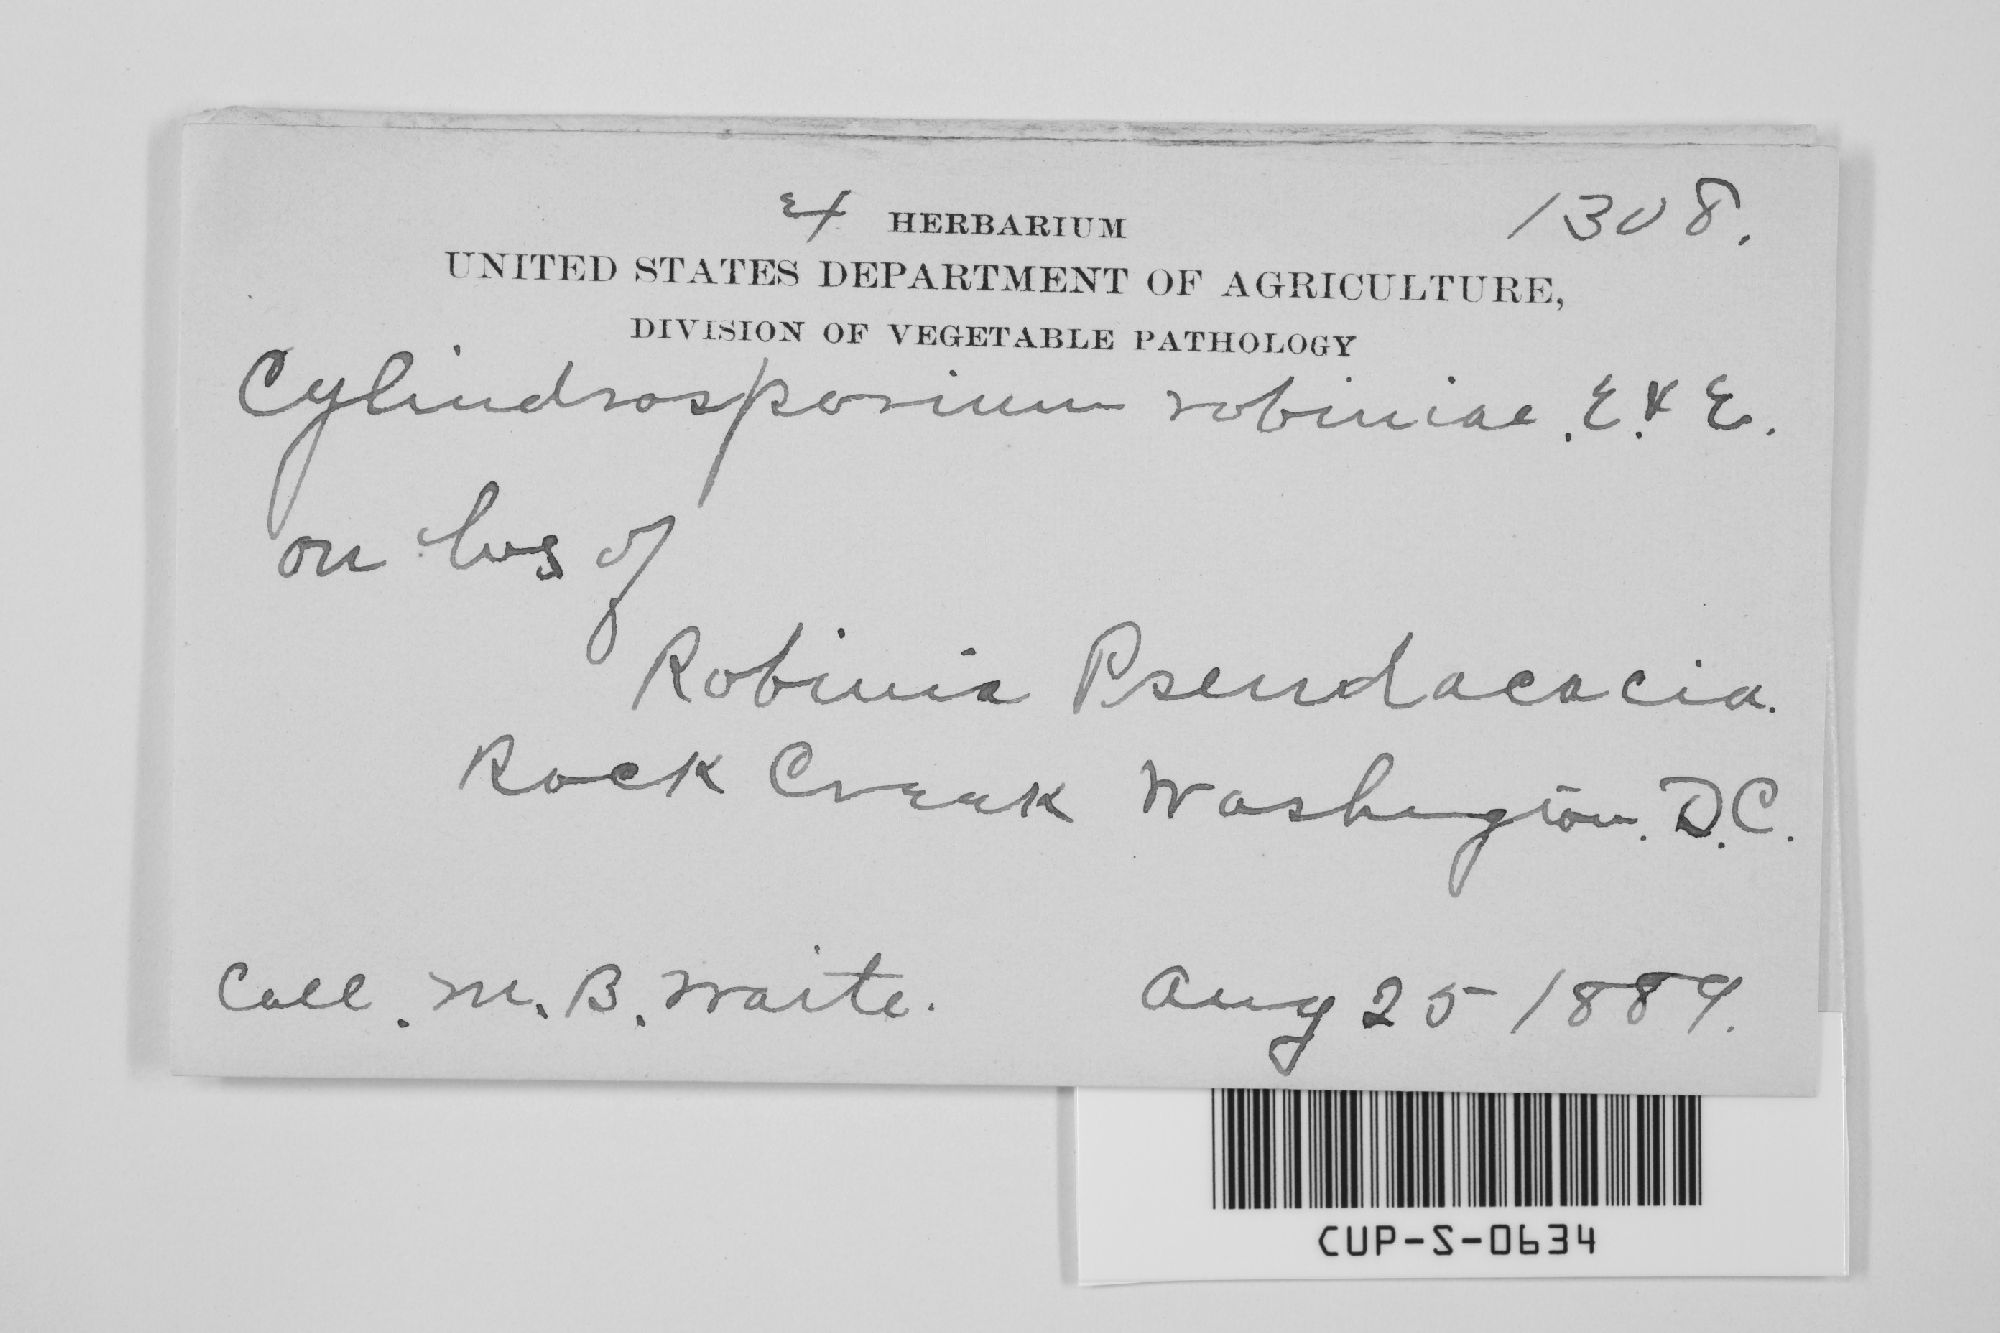 Ex HERBARIUM 1308.
UNITED STATES DEPARTMENT OF AGRICULTURE,
DIVISION OF VEGETABLE PATHOLOGY
Cylindrosporium robiniae. E. & E.
on lvs of
Robinia Pseudacacia.
Rock Creek Washington. D.C.
Coll. M. B. Waite. Aug 25 1889.
CUP-S-0634